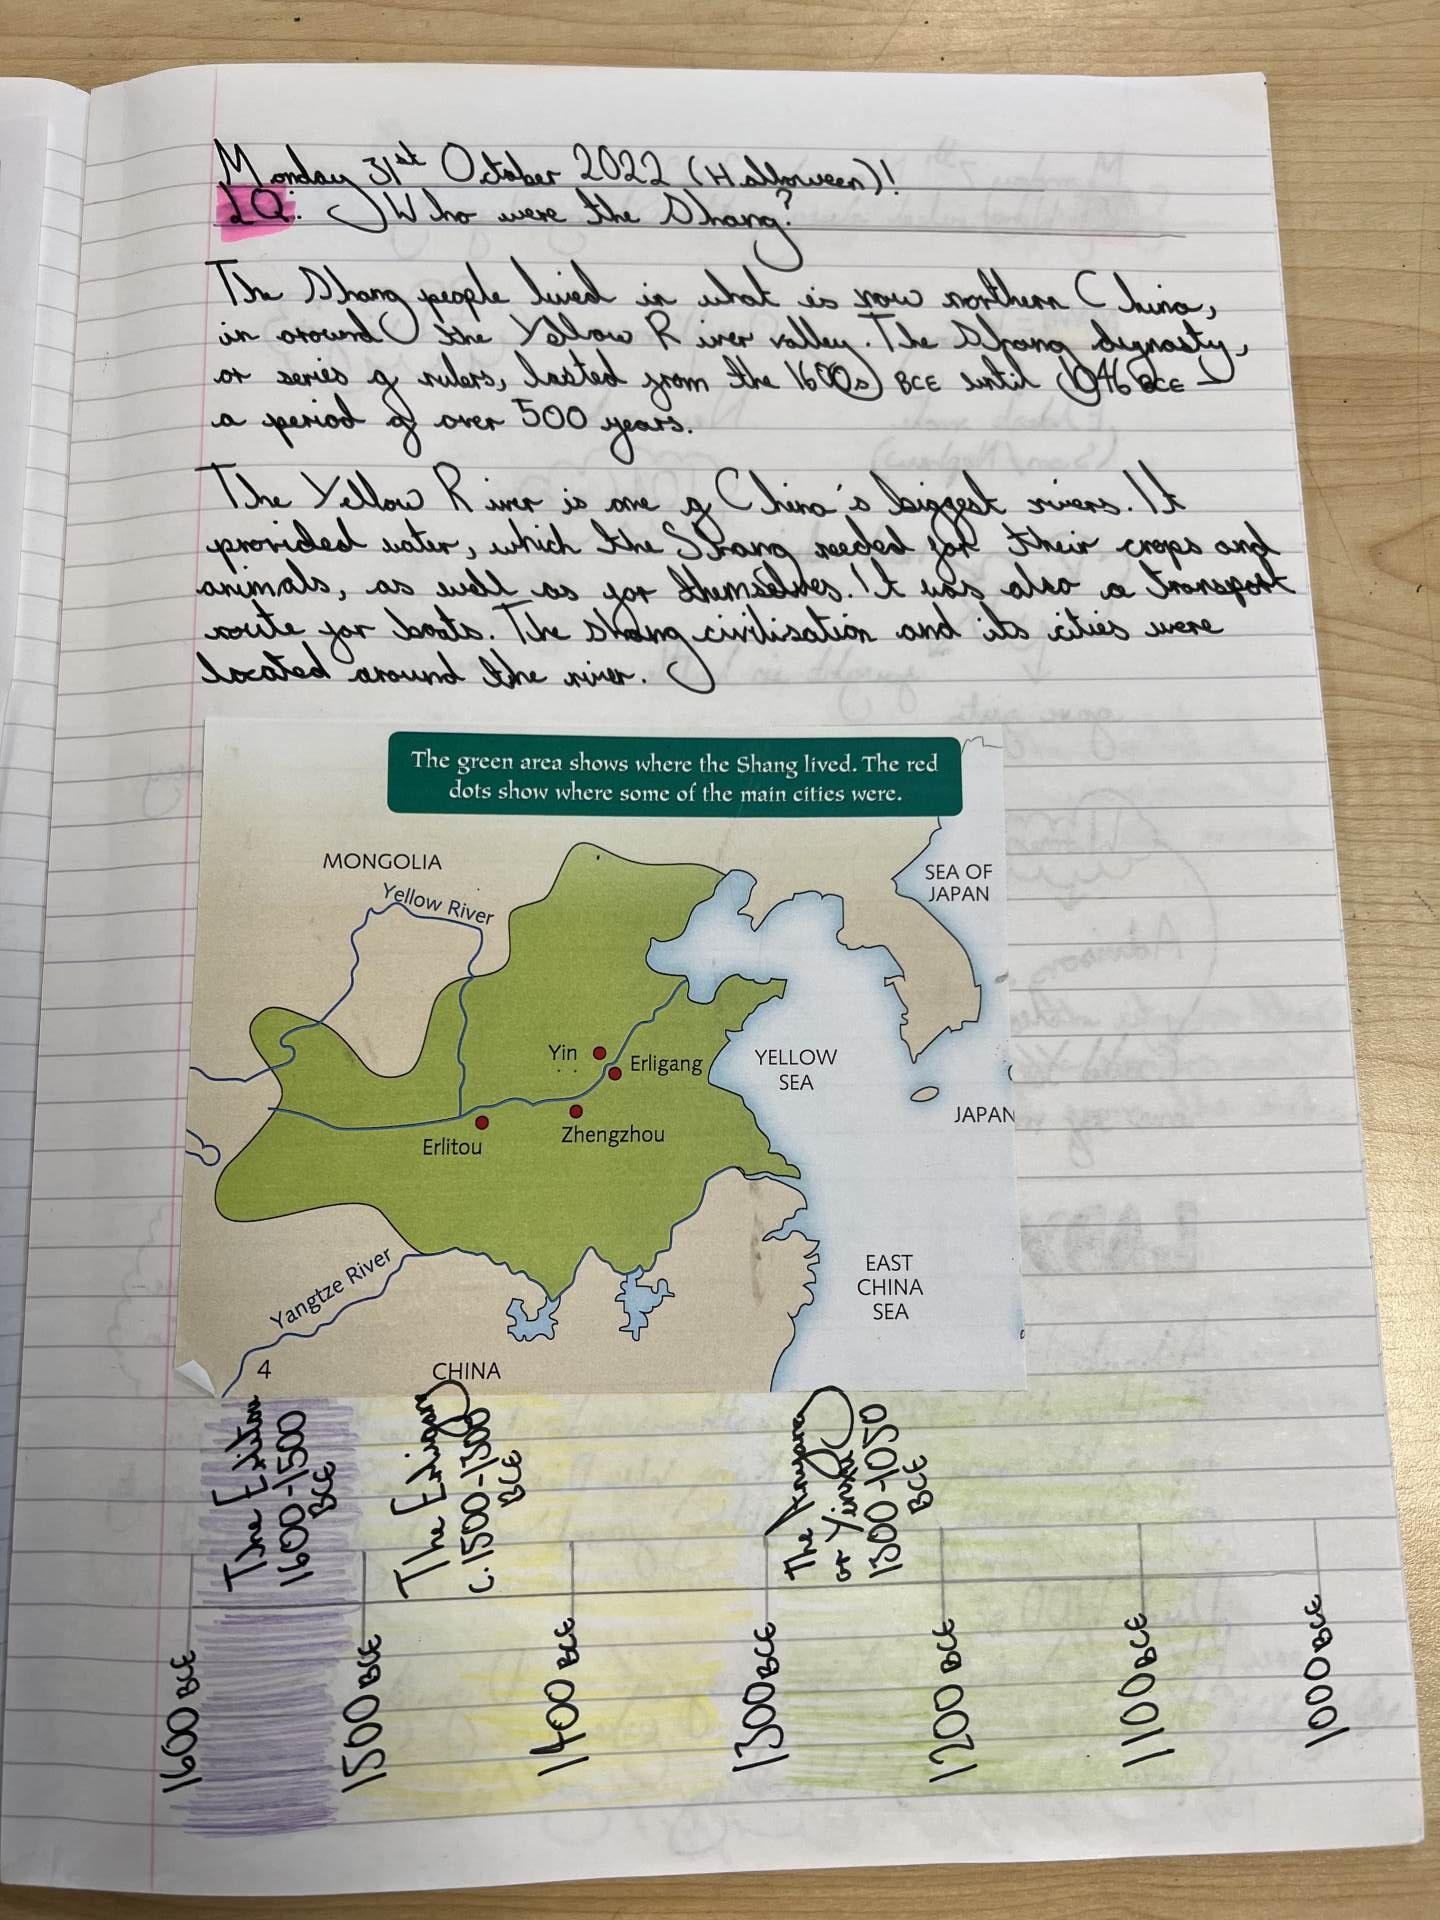 Monday 31st October 2022 (Halloween)!
LQ: Who were the Shang?
The Shang people lived in what is now northern China,
in around the Yellow River valley. The Shang dynasty,
or series of rulers, lasted from the 1600s BCE until 1046 BCE -
a period of over 500 years.
The Yellow River is one of China's biggest rivers. It
provided water, which the Shang needed for their crops and
animals, as well as for themselves. It was also a transport
route for boats. The Shang civilisation and its cities were
located around the river.
The green area shows where the Shang lived. The red
dots show where some of the main cities were.
MONGOLIA
Yellow River
SEA OF
JAPAN
Yin
Erligang
YELLOW
SEA
JAPAN
Erlitou
Zhengzhou
Yangtze River
EAST
CHINA
SEA
4
CHINA
The Erlitou
1600-1500
BCE
The Erligang
c.1500-1300
BCE
The Anyang
or Yinxu
1300-1050
BCE
1600 BCE
1500 BCE
1400 BCE
1300 BCE
1200 BCE
1100 BCE
1000 BCE